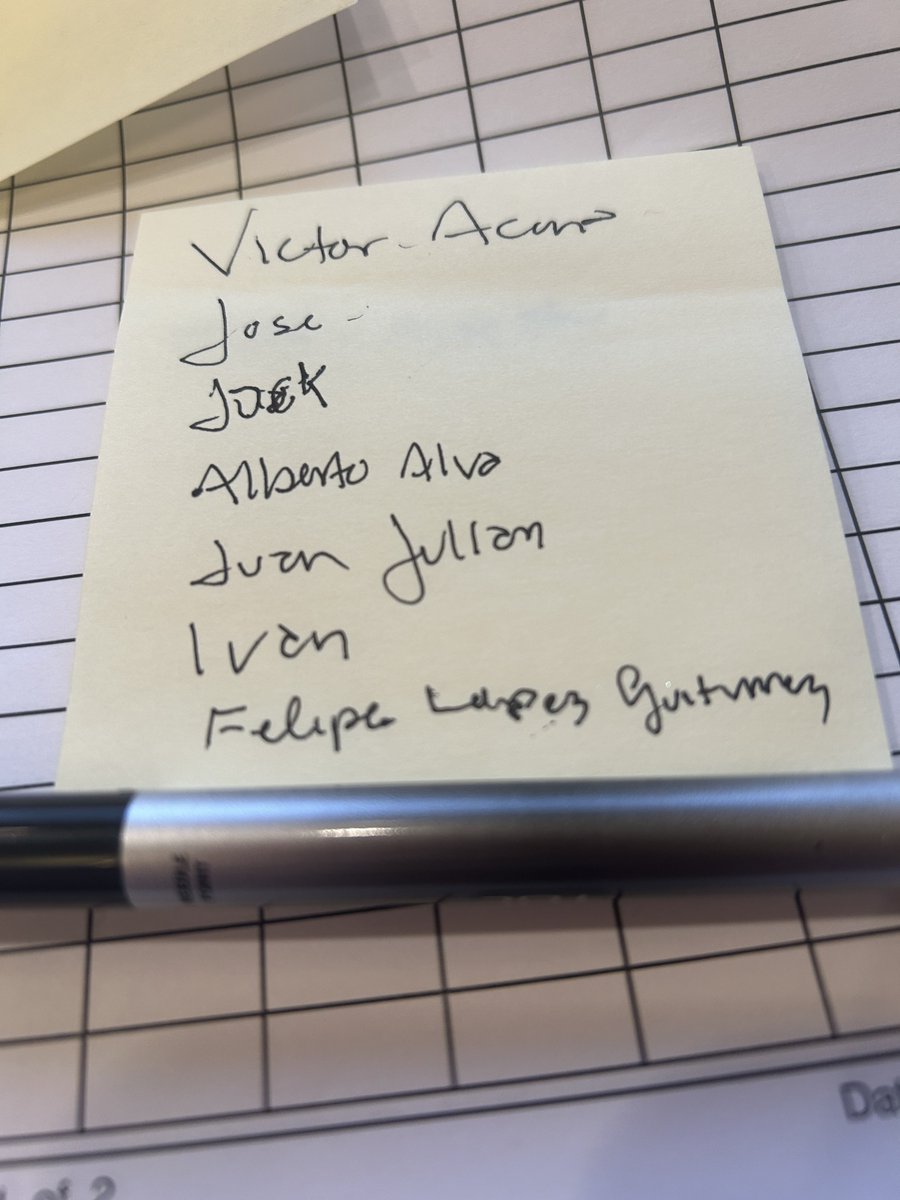 Victor Acuna
Jose
Jack
Alberto Alva
Juan Julian
Ivan
Felipe Lopez
Dat
of 2